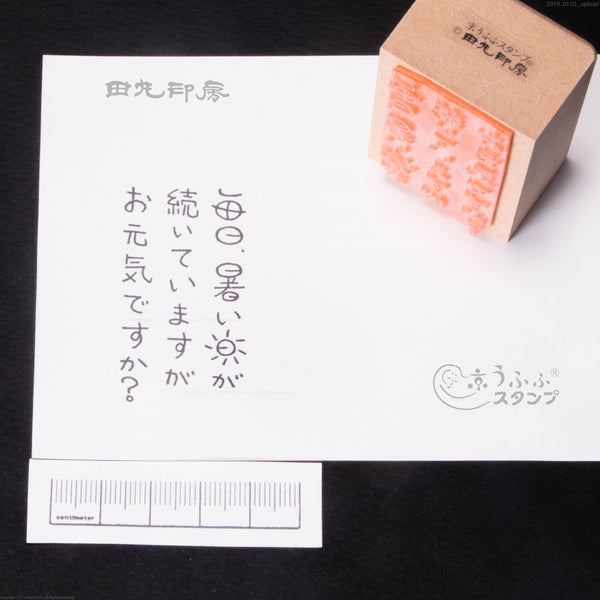 2019.10.01_upload
京うふふスタンプ®
©田丸印房
田丸印房
毎日、暑い日が
続いていますが
お元気ですか？
京うふふ®
スタンプ
centimeter